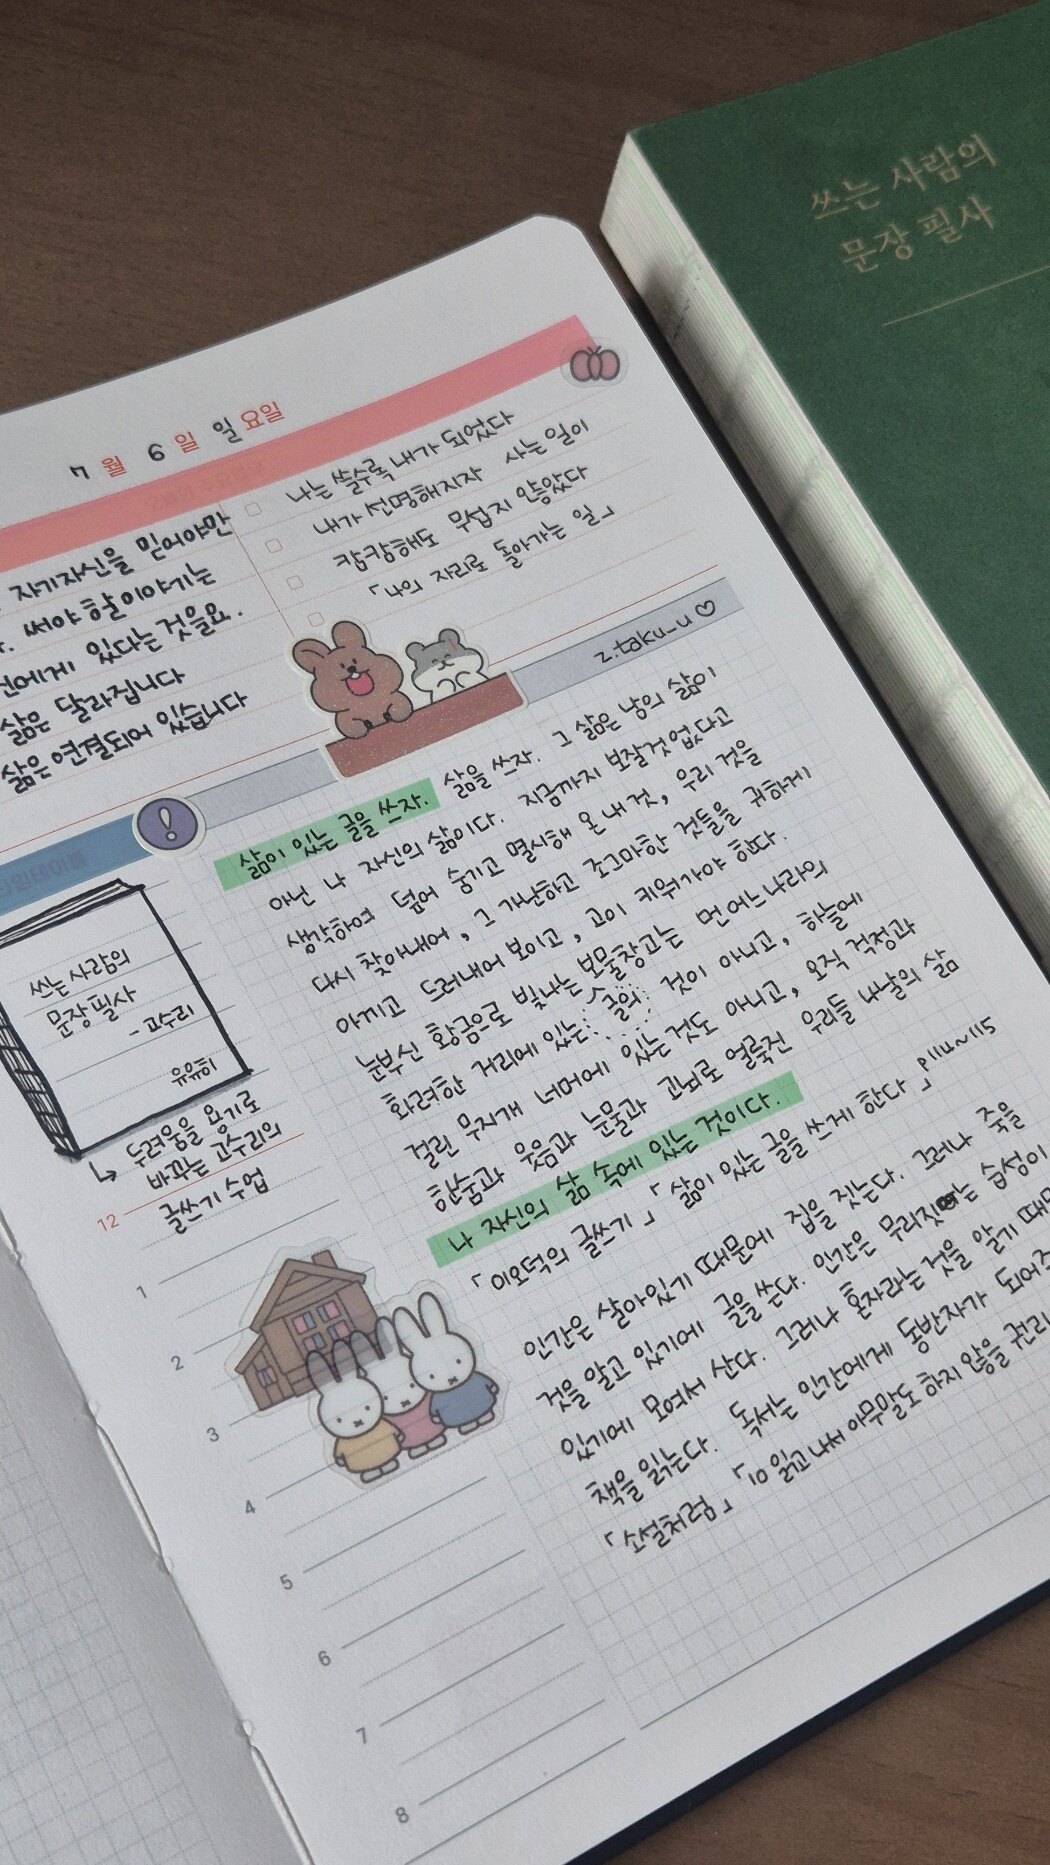 쓰는 사람의
문장 필사
7 월 6 일 일 요일
자기자신을 믿어야만
써야 할 이야기는
에게 있다는 것을요.
삶은 달라집니다
삶은 연결되어 있습니다
나는 쓸수록 내가 되었다
내가 선명해지자 사는 일이
캄캄해도 무섭지 않았다
「나의 자리로 돌아가는 일」
z.taku_u♡
삶이 있는 글을 쓰자. 삶을 쓰자. 그 삶은 남의 삶이
아닌 나 자신의 삶이다. 지금까지 보잘것 없다고
생각하여 덮어 숨기고 멸시해 온 내 것, 우리 것을
다시 찾아내어, 그 가난하고 조그마한 것들을 귀하게
아끼고 드러내어 보이고, 고이 키워가야 한다.
눈부신 황금으로 빛나는 보물창고는 먼 어느나라의
화려한 거리에 있는 글의 것이 아니고, 하늘에
걸린 무지개 너머에 있는 것도 아니고, 오직 걱정과
한숨과 웃음과 눈물과 고뇌로 얼룩진 우리들 나날의 삶
나 자신의 삶 속에 있는 것이다.
「이오덕의 글쓰기」 「삶이 있는 글을 쓰게 한다」 p114~115
쓰는 사람의
문장 필사
- 고수리
유유히
↳ 두려움을 용기로
바꾸는 고수리의
글쓰기 수업
12
1
2
3
4
5
6
7
8
인간은 살아있기 때문에 집을 짓는다. 그러나 죽을
것을 알고 있기에 글을 쓴다. 인간은 무리짓는 습성이
있기에 모여서 산다. 그러나 혼자라는 것을 알기 때문
책을 읽는다. 독서는 인간에게 동반자가 되어주
「소설처럼」 「10 읽고 나서 아무말도 하지 않을 권리